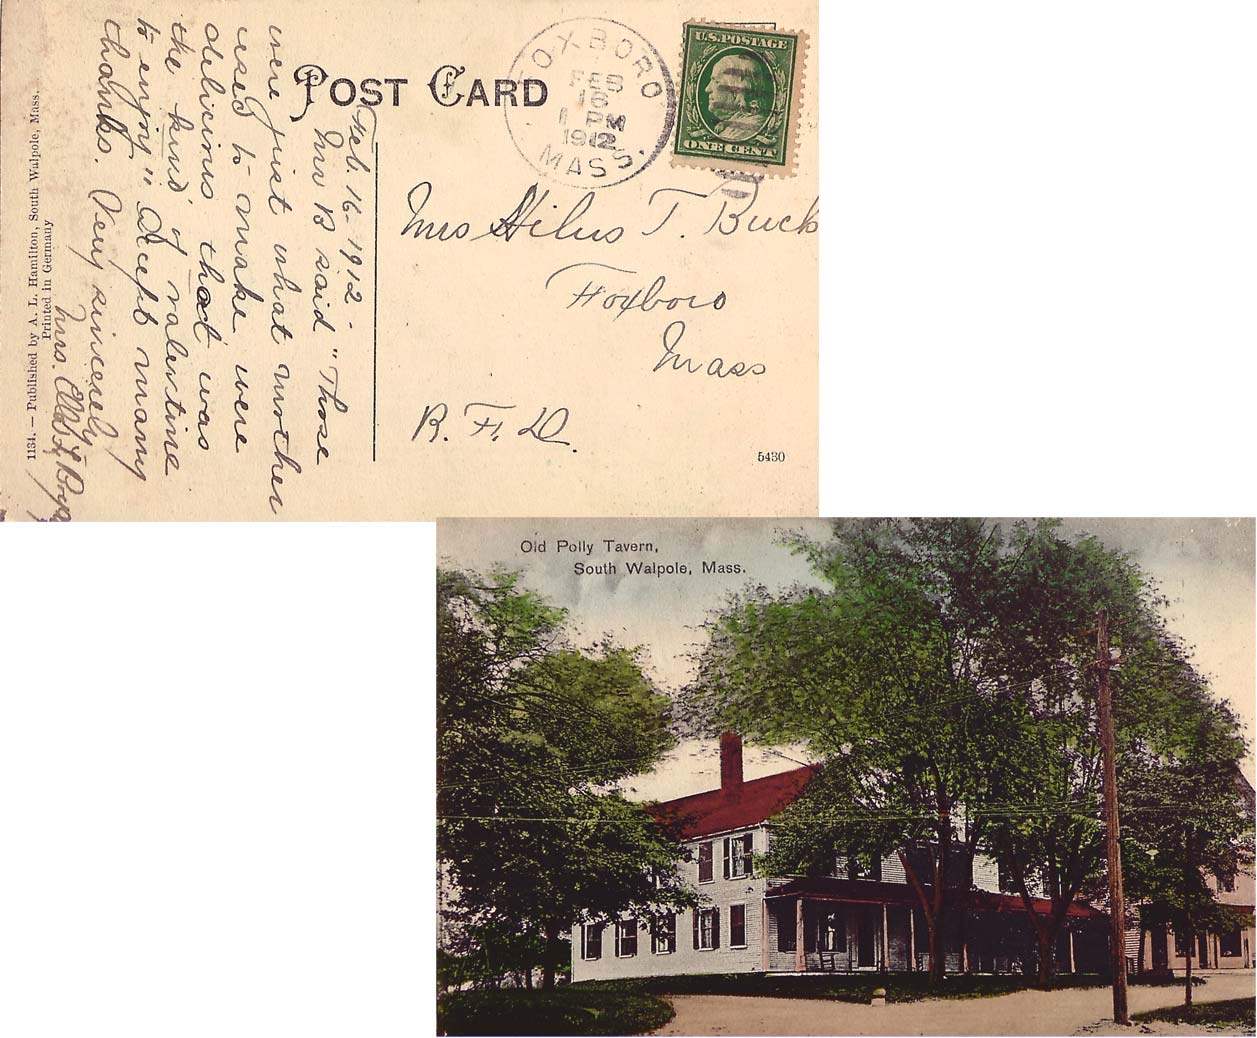 POST CARD
FOXBORO
FEB
16
1 PM
1912
MASS.
U.S. POSTAGE
ONE CENT
Feb. 16-1912-
Mrs B said "Those
were just what mother
used to make were
delicious that was
the kind of valentine
to enjoy" Accept many
thanks. Very sincerely
Mrs.
Mrs Hilus T. Buck
Foxboro
Mass
R. F. D.
1134. — Published by A. L. Hamilton, South Walpole, Mass.
Printed in Germany
5430
Old Polly Tavern,
South Walpole, Mass.